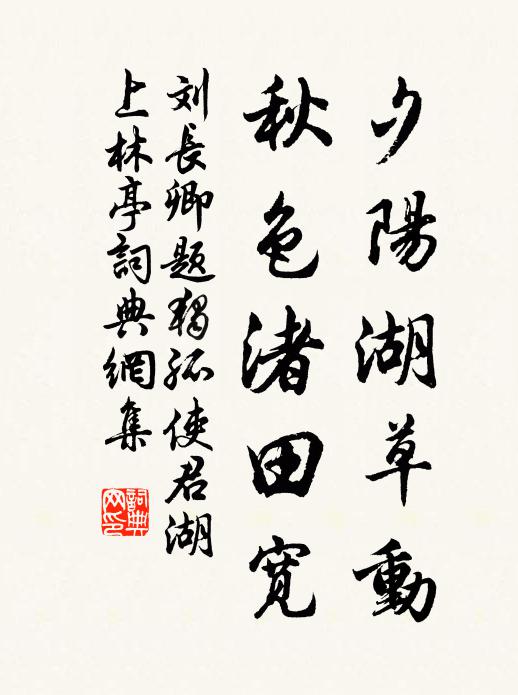 夕陽湖草動
秋色渚田寬
刘長卿題獨孤使君湖
上林亭詞典網集
詞典网印